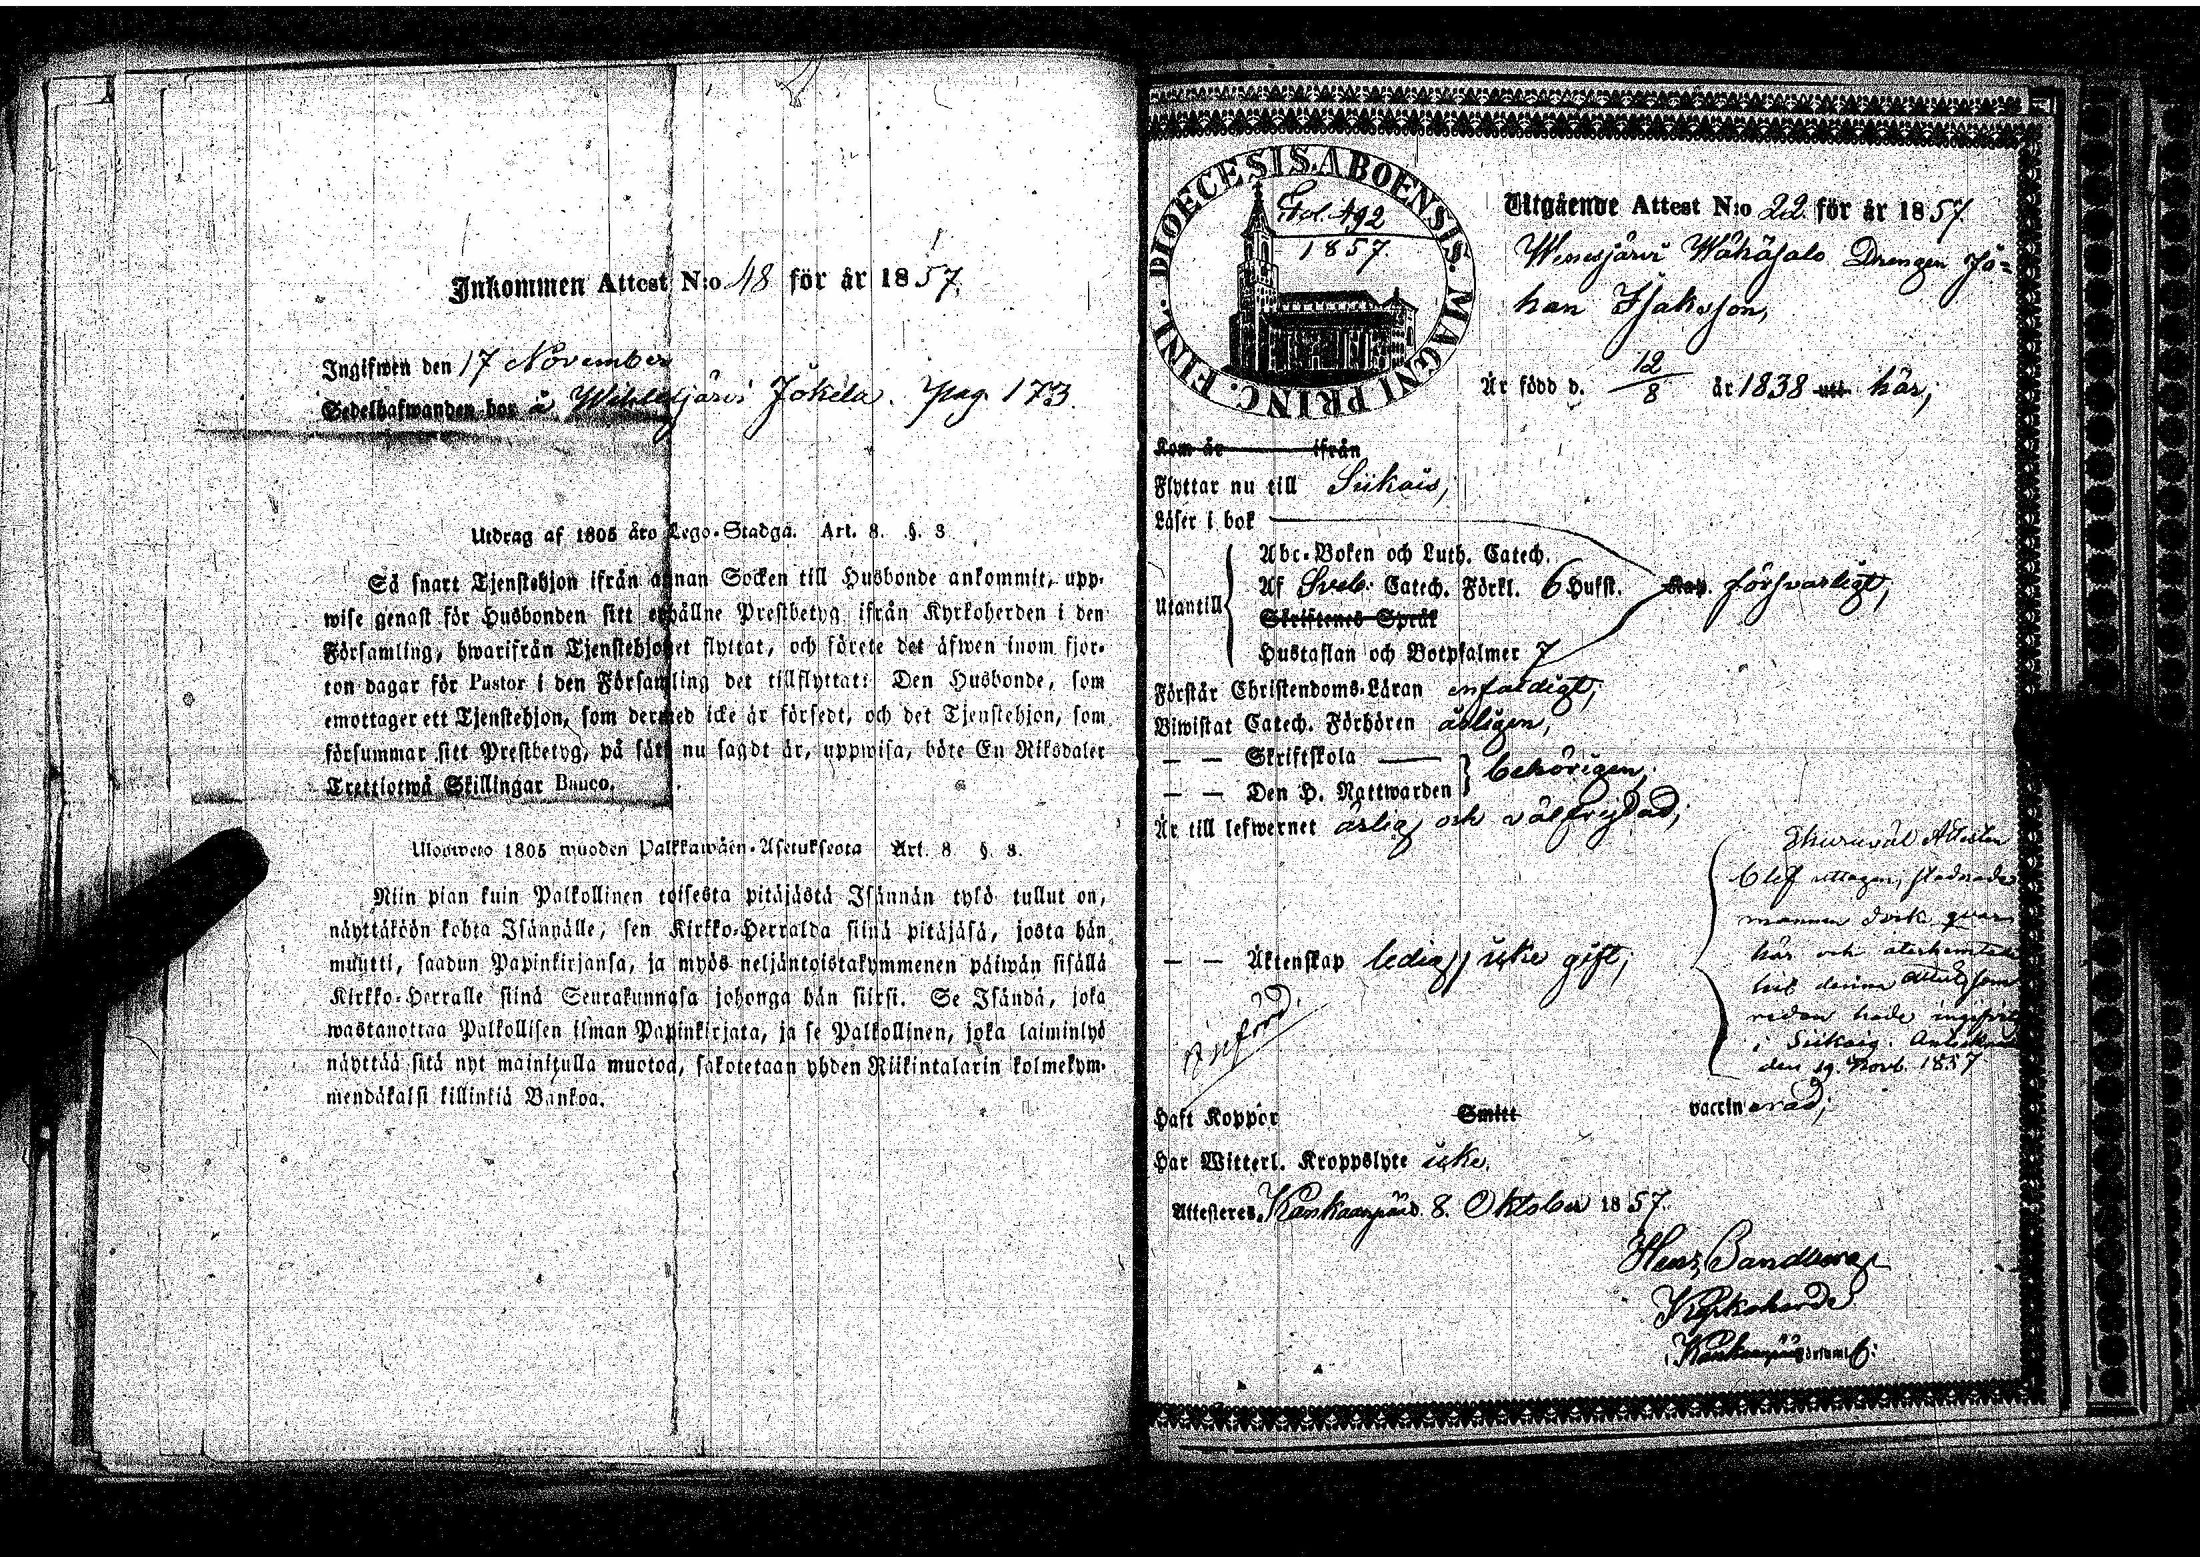 Inkommen Attest N:o 48 för år 1857.
Ingifwen den 17 November
Sedelhafwanden bor å Jokela. Pag. 173.
Utdrag af 1805 års Lego-Stadga. Art. 8. §. 3
Så snart Tjenstehjon ifrån annan Socken till Husbonde ankommit, upp-
wise genast för Husbonden sitt erhållne Prestbetyg ifrån Kyrkoherden i den
Församling, hwarifrån Tjenstehjonet flyttat, och förete det äfwen inom fjor-
ton dagar för Pastor i den Församling det tillflyttat: Den Husbonde, som
emottager ett Tjenstehjon, som dermed icke är försedt, och det Tjenstehjon, som
försummar sitt Prestbetyg, på sätt nu sagdt är, uppwisa, böte En Riksdaler
Trettiotwå Skillingar Banco.
Uloswето 1805 muoden Palkkawäen-Asetuksesta Art. 8 §. 3.
Niin pian kuin Palkollinen toisesta pitäjästä Isännän tykö tullut on,
näyttäköön kohta Isännälle, sen Kirkko-Herralda siinä pitäjäsä, josta hän
muutti, saadun Papinkirjansa, ja myös neljäntoistakymmenen päiwän sisällä
Kirkko-Herralle siinä Seurakunnasa johonga hän siirsi. Se Isändä, joka
wastanottaa Palkollisen ilman Papinkirjata, ja se Palkollinen, joka laiminlyö
näyttää sitä nyt mainitulla muotoa, sakotetaan yhden Riikintalarin kolmekym-
mendäkaksi killinkiä Bankoa.
DIOECESIS ABOENSIS. MAGNI PRINC. FINL.
Fol. 492
1857.
Utgående Attest N:o 22 för år 1857.
Wenesjärvi Wähäsalo Drengen Jo=
han Isaksson,
Är född d. 12/8 år 1838 uti här,
Kom år ifrån
Flyttar nu till Siikais,
Läser i bok
Utantill
Abc-Boken och Luth. Catech.
Af Sveb. Catech. Förkl. 6 Hufst. försvarligt,
Skriftenes Språk
Hustaflan och Botpsalmer 7
Förstår Christendoms-Läran enfaldigt,
Biwistat Catech. Förhören årligen,
— — Skriftskola
— — Den H. Nattwarden behörigen,
Är till lefwernet ärlig och välfrejdad,
Ehuruväl Attesten
blef uttagen, stadnade
mannen dock qvar
här och återhemtade
hit denna attest, som
redan hade ingifvits
i Siikais.
den 19. Novb. 1857
— — Äktenskap ledig, icke gift,
Införd.
Haft Koppor Smitt vaccinerad,
Har Witterl. Kroppslyte icke.
Attesteras, Kankaanpää d. 8. Oktober 1857.
Henr. Sandberg
Kyrkoherde
i Kankaanpää församl.